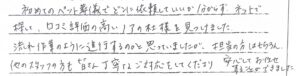 初めてのペット葬儀でどこに依頼していいか分からず、ネットで
探し、口コミ評価の高い17の社様を見つけました。
流れ作業のように進行するのかと思っていましたが、担当の方はもちろん
他のスタッフの方も丁寧なご対応をしてくださり
安心してお任せ
することができました